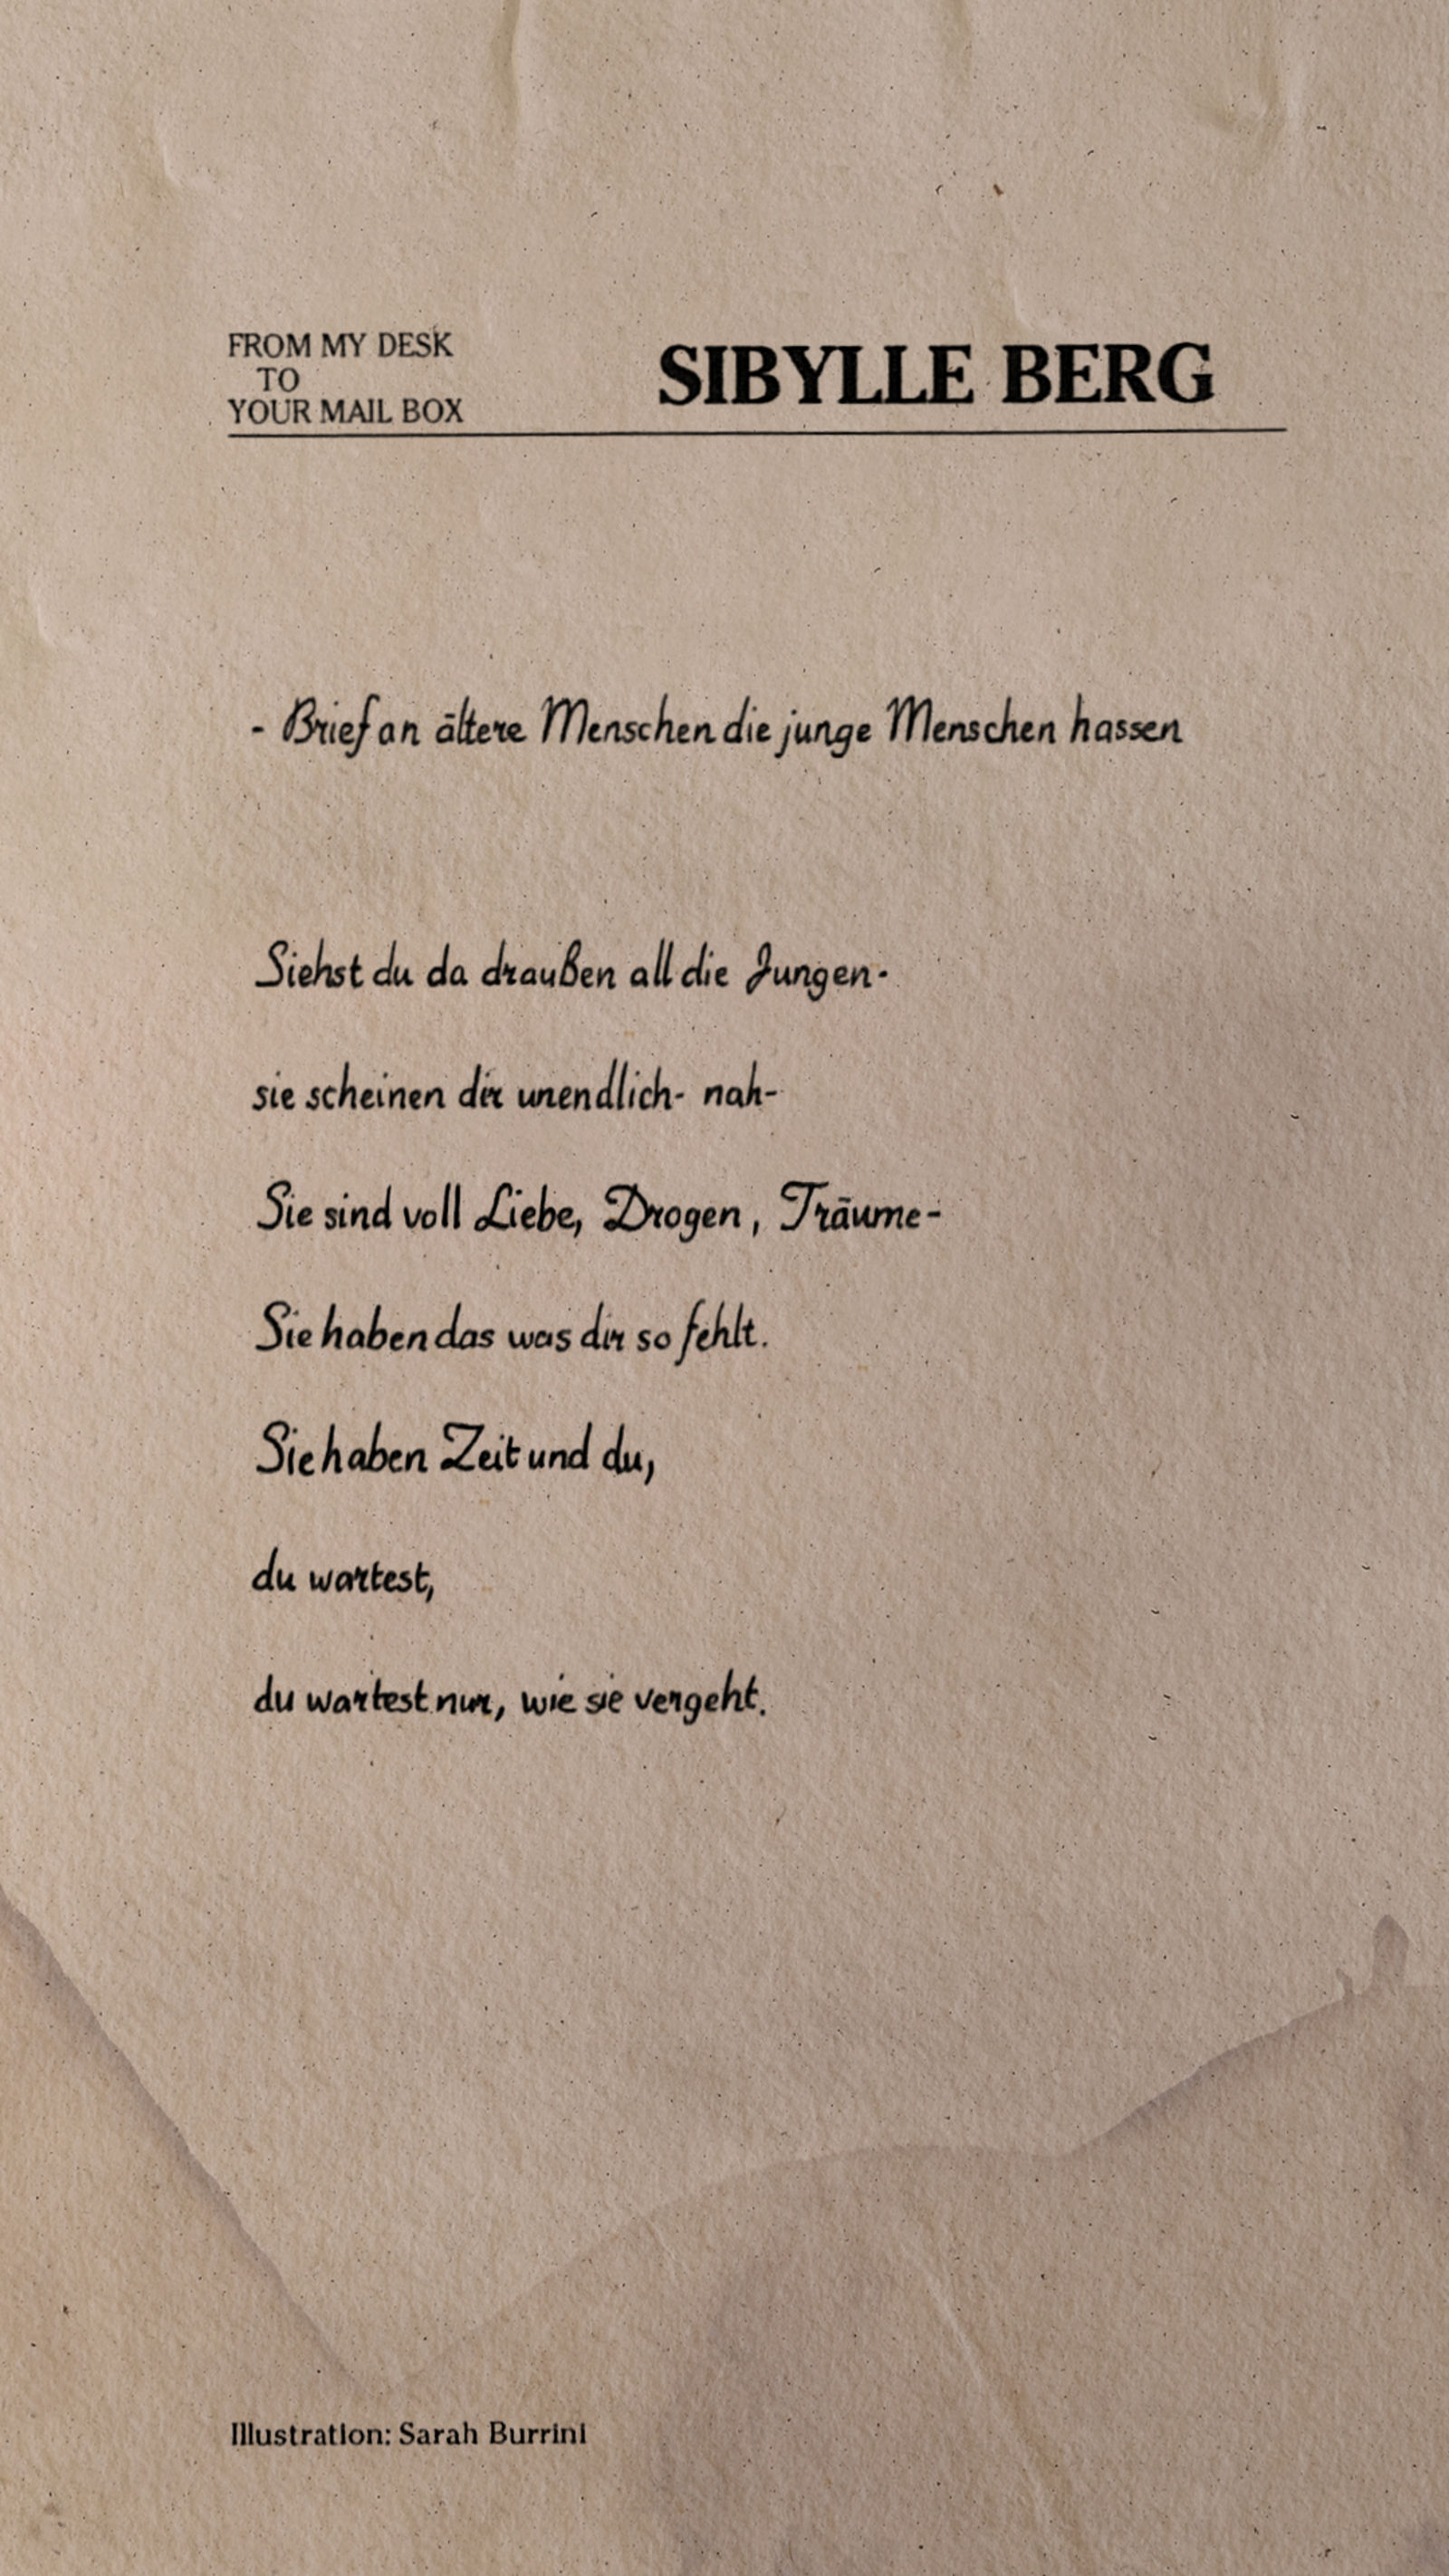 FROM MY DESK
TO
YOUR MAIL BOX
SIBYLLE BERG
- Brief an ältere Menschen die junge Menschen hassen
Siehst du da draußen all die Jungen-
sie scheinen dir unendlich- nah-
Sie sind voll Liebe, Drogen, Träume-
Sie haben das was dir so fehlt.
Sie haben Zeit und du,
du wartest,
du wartest nur, wie sie vergeht.
Illustration: Sarah Burrini